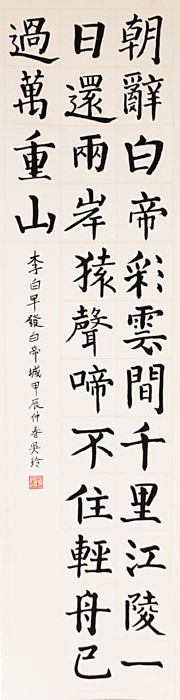 朝辭白帝彩雲間千里江陵一
日還兩岸猿聲啼不住輕舟已
過萬重山
李白早發白帝城甲辰仲春吳玲